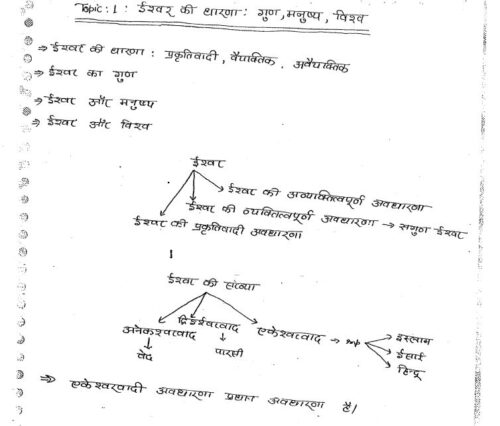 Topic: 1 : ईश्वर की धारणा : गुण, मनुष्य, विश्व
⇒ ईश्वर की धारणा : प्रकृतिवादी, वैयक्तिक, अवैयक्तिक
⇒ ईश्वर का गुण
⇒ ईश्वर और मनुष्य
⇒ ईश्वर और विश्व
ईश्वर
ईश्वर की अव्यक्तित्वपूर्ण अवधारणा
ईश्वर की व्यक्तित्वपूर्ण अवधारणा → सगुण ईश्वर
ईश्वर की प्रकृतिवादी अवधारणा
ईश्वर की संख्या
अनेकश्वरवाद द्विईश्वरवाद एकेश्वरवाद → imp
इस्लाम
ईसाई
हिन्दू
वेद
पारसी
⇒ एकेश्वरवादी अवधारणा प्रधान अवधारणा है।